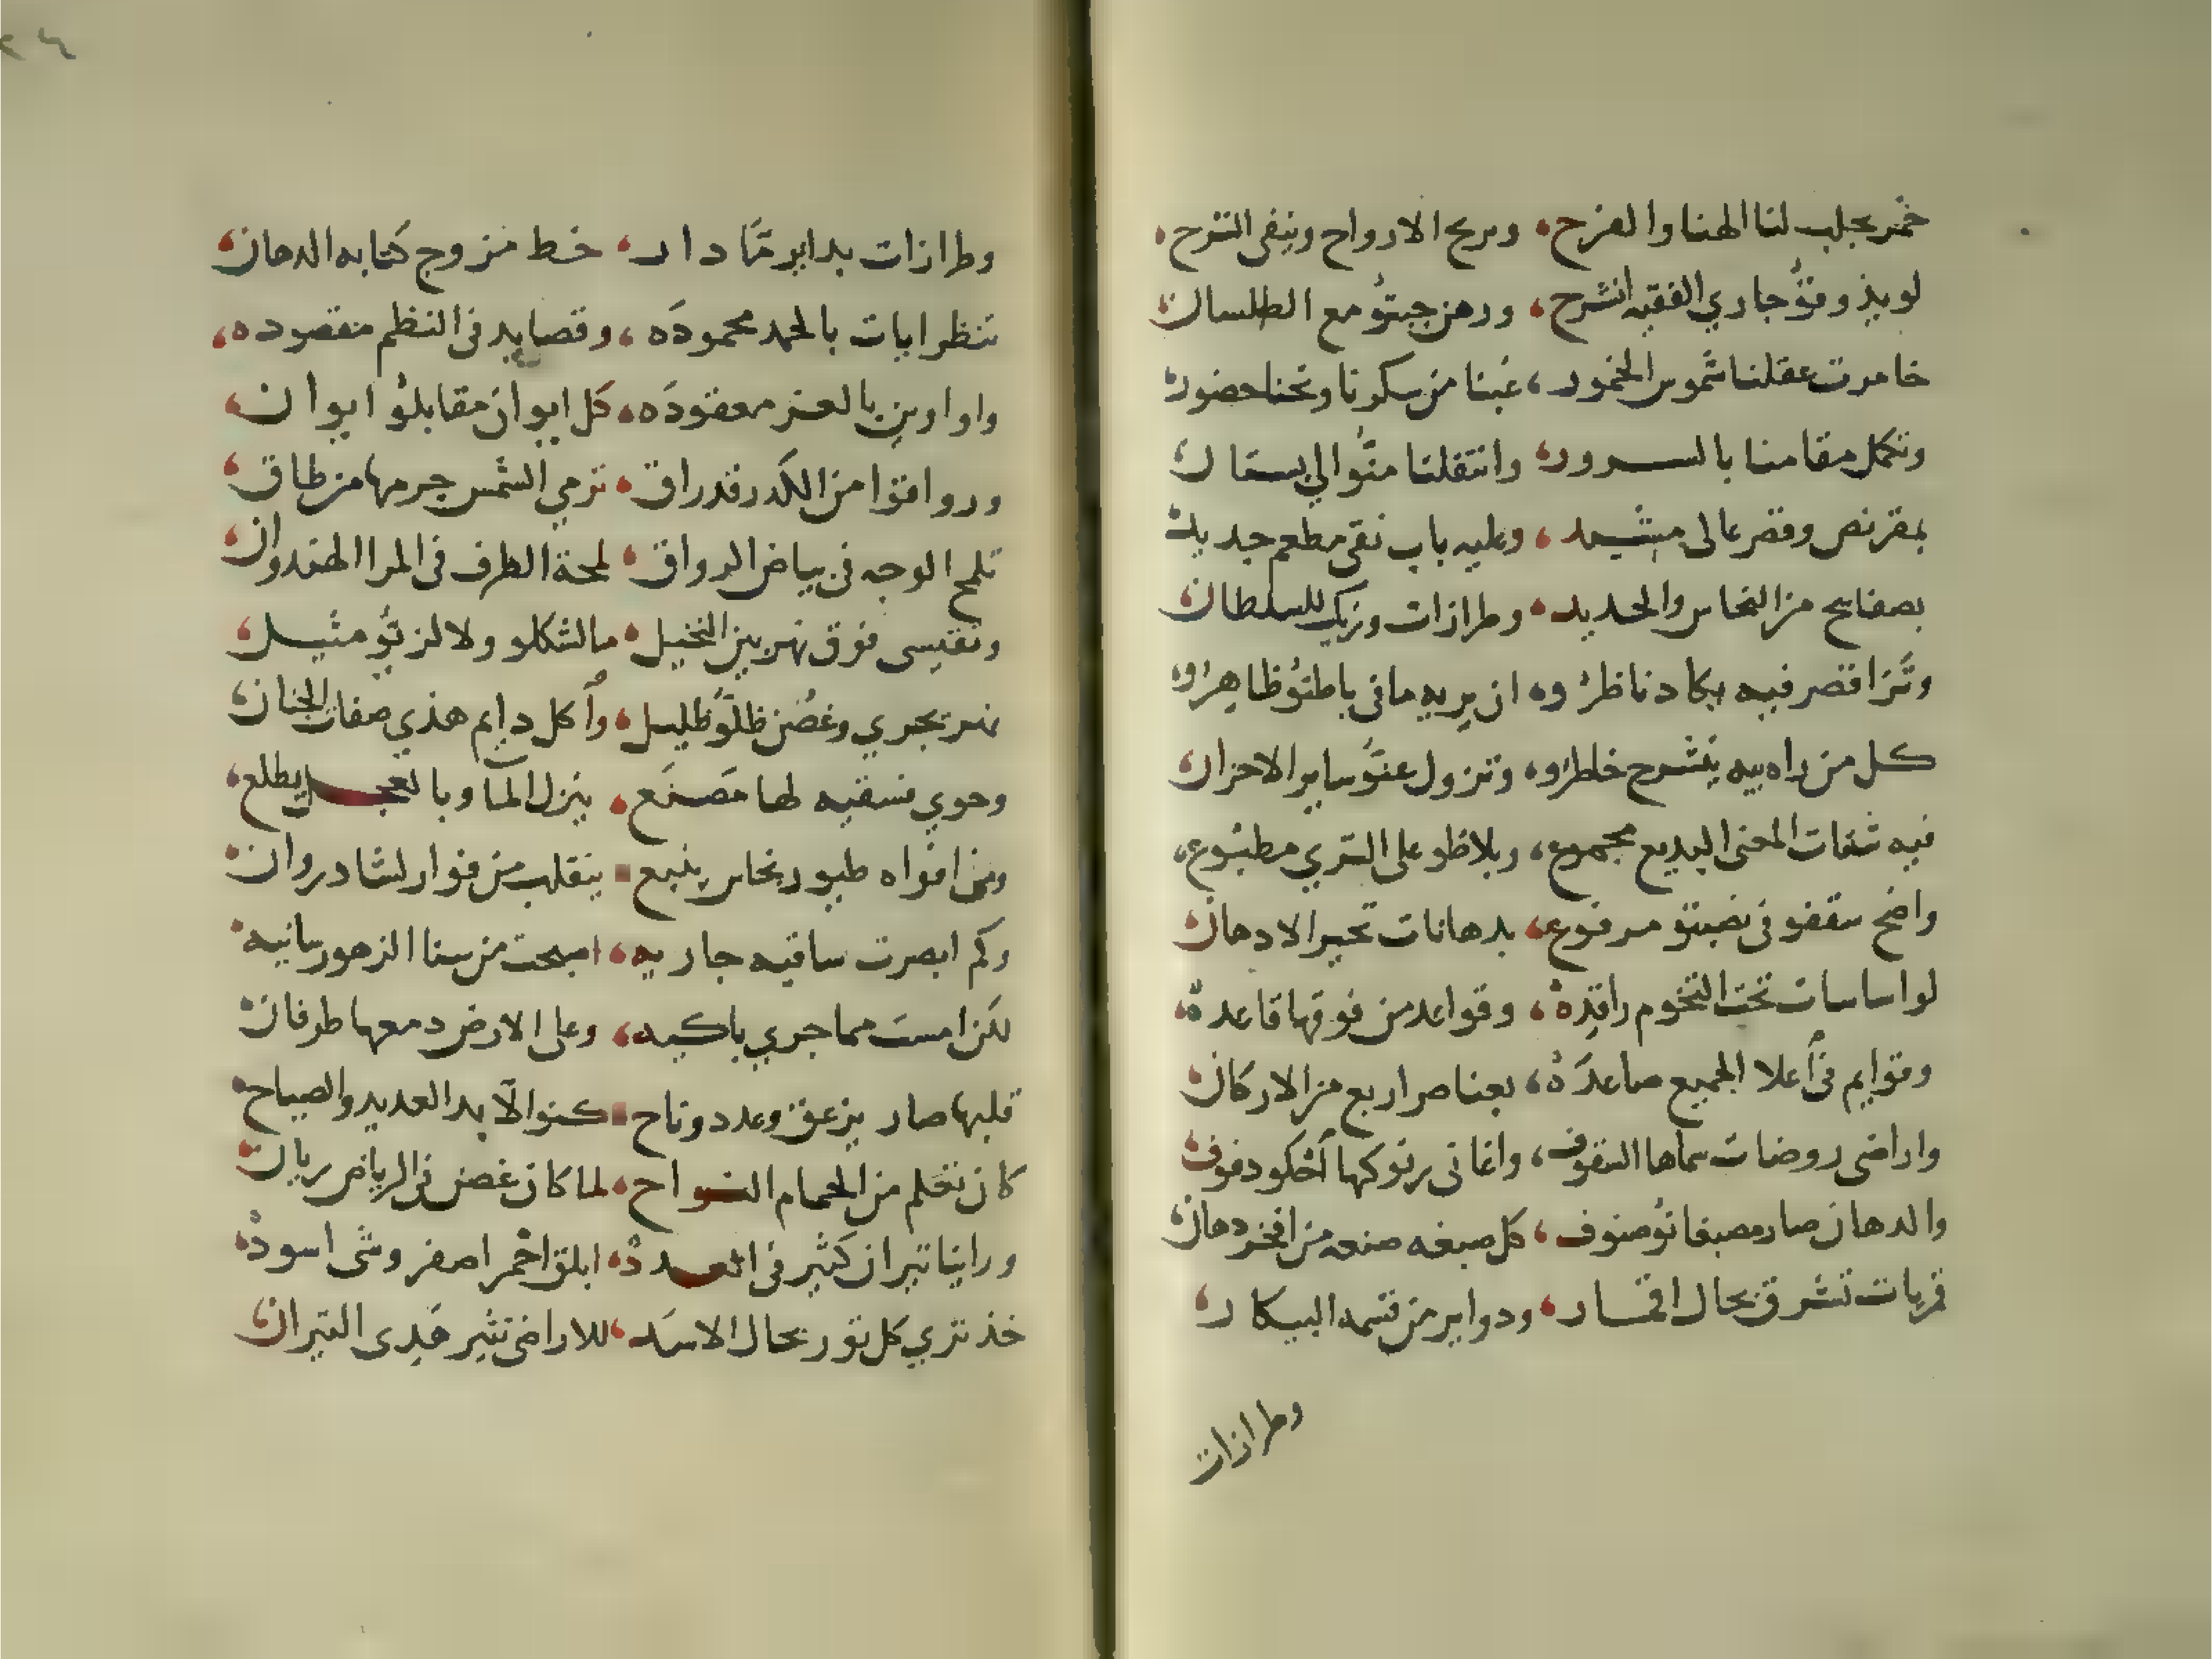 خمر يجلب لنا الهنا والفرح، ويريح الارواح وينفى الترح،
لو يذوقو جاري الفقيه انشرح، ورهن جبتو مع الطلسان
خامرت عقلنا شموس الخمور، غبنا من سكرنا ونحنا حضور
وتكمل مقامنا بالسرور، وانتقلنا منو الي بستان
بمقرنص وقصر عالى مشيد، وعليه باب نقى مطعم جديد
بصفايح من النحاس والحديد، وطرازات ورنك للسلطان
وترا قصر فيه يكاد ناظرو، ان يريه مافى باطنو ظاهرو،
كل من راه بيه ينشرح خاطرو، وتزول عنو ساير الاحزان
فيه شتات المعنى البديع مجموع، وبلاطو على التري مطبوع،
واضح سقفو فى نصبتو مرفوع، بدهانات تحير الادهان
لو اساسات تخت التخوم راقده، وقواعد من فوقها قاعده،
وقوايم فى أعلا الجميع صاعده، بعناصر اربع من الاركان
واراضى روضات سماها السقوف، واغانى برنوكها دفوف
والدهان صار مصبغاتو صنوف، كل صبغه صنعه من افخر دهان
قمريات تشرق بحال اقمار، ودواير من قسمه البيكار
وطرازات
وطرازات بداير ما دار، خط مزوج كتابه الدهان
تنظر ايات بالحمد محموده، وقصايد فى النظم مقصوده،
واواوين بالعز معقوده، كل ايوان مقابلو ايوان
ورواقوا من الكدر قد راق، ترمي الشمس جرمها من طاق
تلمح الوجه فى بياض الرواق، لمحة الطرف فى المرا الهندوان
وتقيسى فوق نهر بين النخيل، ما لشكلو ولا لزيو مثيل
نهر يجري وغصن ظلو ظليل، وأكل دايم هذي صفات الجنان
وحوي فسقيه لها مصنع، ينزل الما وبالعجل يطلع،
ومن افواه طيور نحاس ينبع، ينقلب من فوار لشادروان
وكم ابصرت ساقيه جاريه، اصبحت من سنا الزهور سانيه
لكن امست مما جري باكيه، وعلى الارض دمعها طوفان
قلبها صار يزعق وعدد وناح، كنوا لا بد العديد والصياح
كان تعلم من الحمام النواح، لما كان غصن فى الرياض ريان
وراينا تيران كثير فى العدد، ابلق احمر اصفر وشى اسود
خذ تري كل تور بحال الاسد، للاراضى تثير هدى التيران